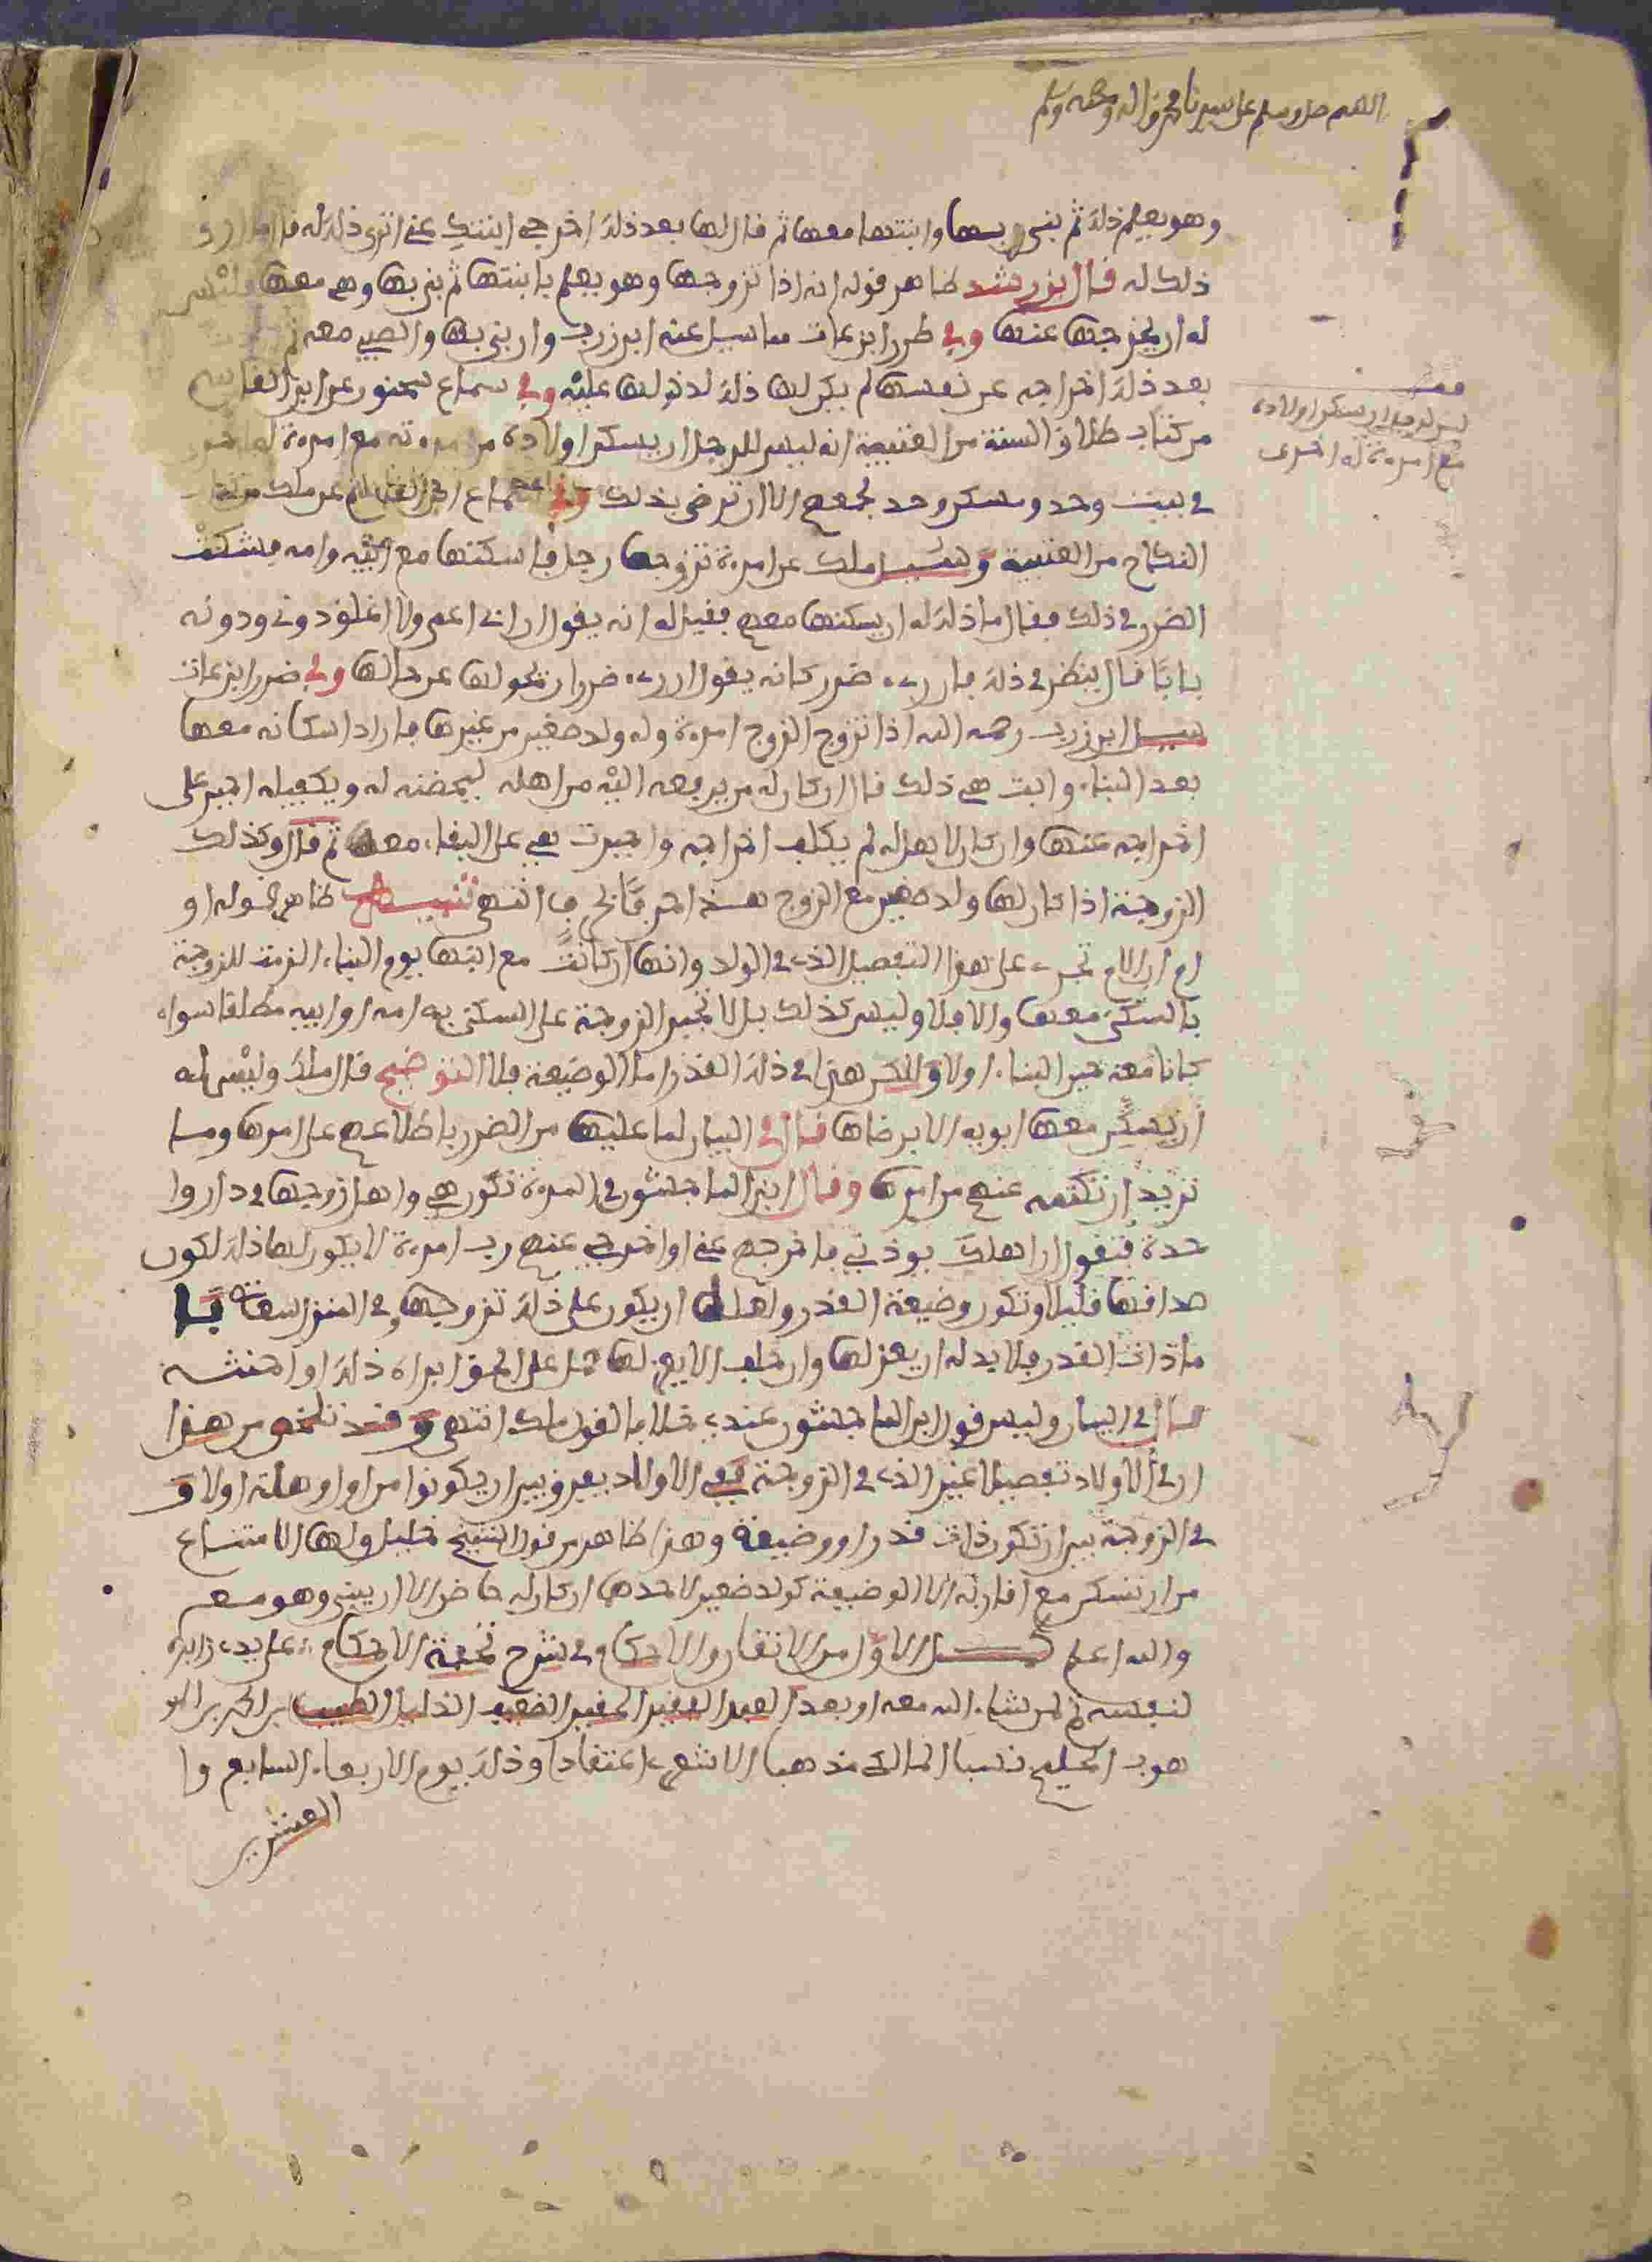 اللهم صل وسلم على سيدنا محمد واله وصحبه وسلم
وهو يعلم ذلك ثم بنى بها وابنتها معها ثم قال لها بعد ذلك اخرجي ابنتك عني اترى ذلك له قال
ذلك له قال ابن رشد ظاهر قوله انه اذا تزوجها وهو يعلم بابنتها ثم بنى بها وهي معها فليس
له ان يخرجها عنها وفي طرر ابن عات مما سيل عنه ابن زرب وان بنى بها والصبي معه ثم
بعد ذلك اخراجه عن نفسها لم يكن لها ذلك لدخولها عليه وفي سماع سحنون عن ابن القاسم
ليس للرجل ان يسكن اولاده
مع امرءة له اخرى
من كتاب طلاق السنة من العتبية انه ليس للرجل ان يسكن اولاده من امرءته مع امرءة له اخرى
في بيت وحد ومسكن وحد يجمعهم الا ان ترضى بذلك وفي سماع ابن القاسم عن ملك من كتاب
النكاح من العتبية وسيل ملك عن امرءة تزوجها رجل فاسكنها مع ابيه وامه فشكت
الضرر في ذلك فقال ما ذلك له ان يسكنها معهم فقيل له انه يقول ان ابي اعمى ولا اغلق دوني ودونه
بابا قال ينظر في ذلك فان رءى ضرر كانه يقول ان رءى ضررا ان يحولها عن حالها وفي ضرر ابن عات
سيل ابن زرب رحمه الله اذا تزوج الزوج امرءة وله ولد صغير من غيرها فاراد اسكانه معها
بعد البناء وابت هي ذلك قال ان كان له من يرفعه اليه من اهله ليحضنه له ويكفيله اجبر على
اخراجه عنها وان كان لا اهل له لم يكلف اخراجه واجبرت هي على البقاء معه ثم قال وكذلك
الزوجة اذا كان لها ولد صغير مع الزوج هذا حرفا بحرف انتهى تنبيه ظاهر قوله او
ام ان الام تجري على هذا التفصيل الذي في الولد وانها ان كانت مع ابنها يوم البناء الزمت للزوجة
بالسكنى معها والا فلا وليس كذلك بل لا تجبر الزوجة على السكنى مع امه او ابيه مطلقا سواء
كانا معه حين البناء او لا ولكن هذا في ذات القدر اما الوضيعة فلا التوضيح قال ملك وليس له
ان يسكن معها ابويه الا برضاها قال في البيان لما عليها من الضرر باطلاعهم على امرها وما
تريد ان تكتمه عنهم من امرها وقال ابن الماجشون في المرءة تكون هي واهل زوجها في دار وا
حدة فتقول ان اهلك يوذيني فاخرجهم عني او اخرجني عنهم رب امرءة لا يكون لها ذلك لكون
صداقها قليلا وتكون وضيعة القدر ولعله ان يكون على ذلك تزوجها وفي المنزل سعة فا
ما ذات القدر فلا بد له ان يعزلها وان حلف الا يعزلها حمل على الحق ابراه ذلك او احنثه
قال في البيان وليس قول ابن الماجشون عندي خلافا لقول ملك انتهى وقد تلخص من هذا
ان في الاولاد تفصيلا غير الذي في الزوجة ففي الاولاد يفرق بين ان يكونوا من اول وهلة او لا و
في الزوجة بين ان تكون ذات قدر او وضيعة وهذا ظاهر من قول الشيخ خليل ولها الامتناع
من ان تسكن مع اقاربه الا الوضيعة كولد صغير لاحدهما ان كان له حاضن الا ان يبني وهو معه
والله اعلم كمل الاول من الاتقان والاحكام في شرح تحفة الاحكام على يد زابره
لنفسه ثم لمن شاء الله معه او بعد العبد الفقير الحقير الضعيف الذليل الطيب
هوب الحليم نسبا المالكي مذهبا الاشعري اعتقادا وذلك يوم الاربعاء السابع وا
العشرين